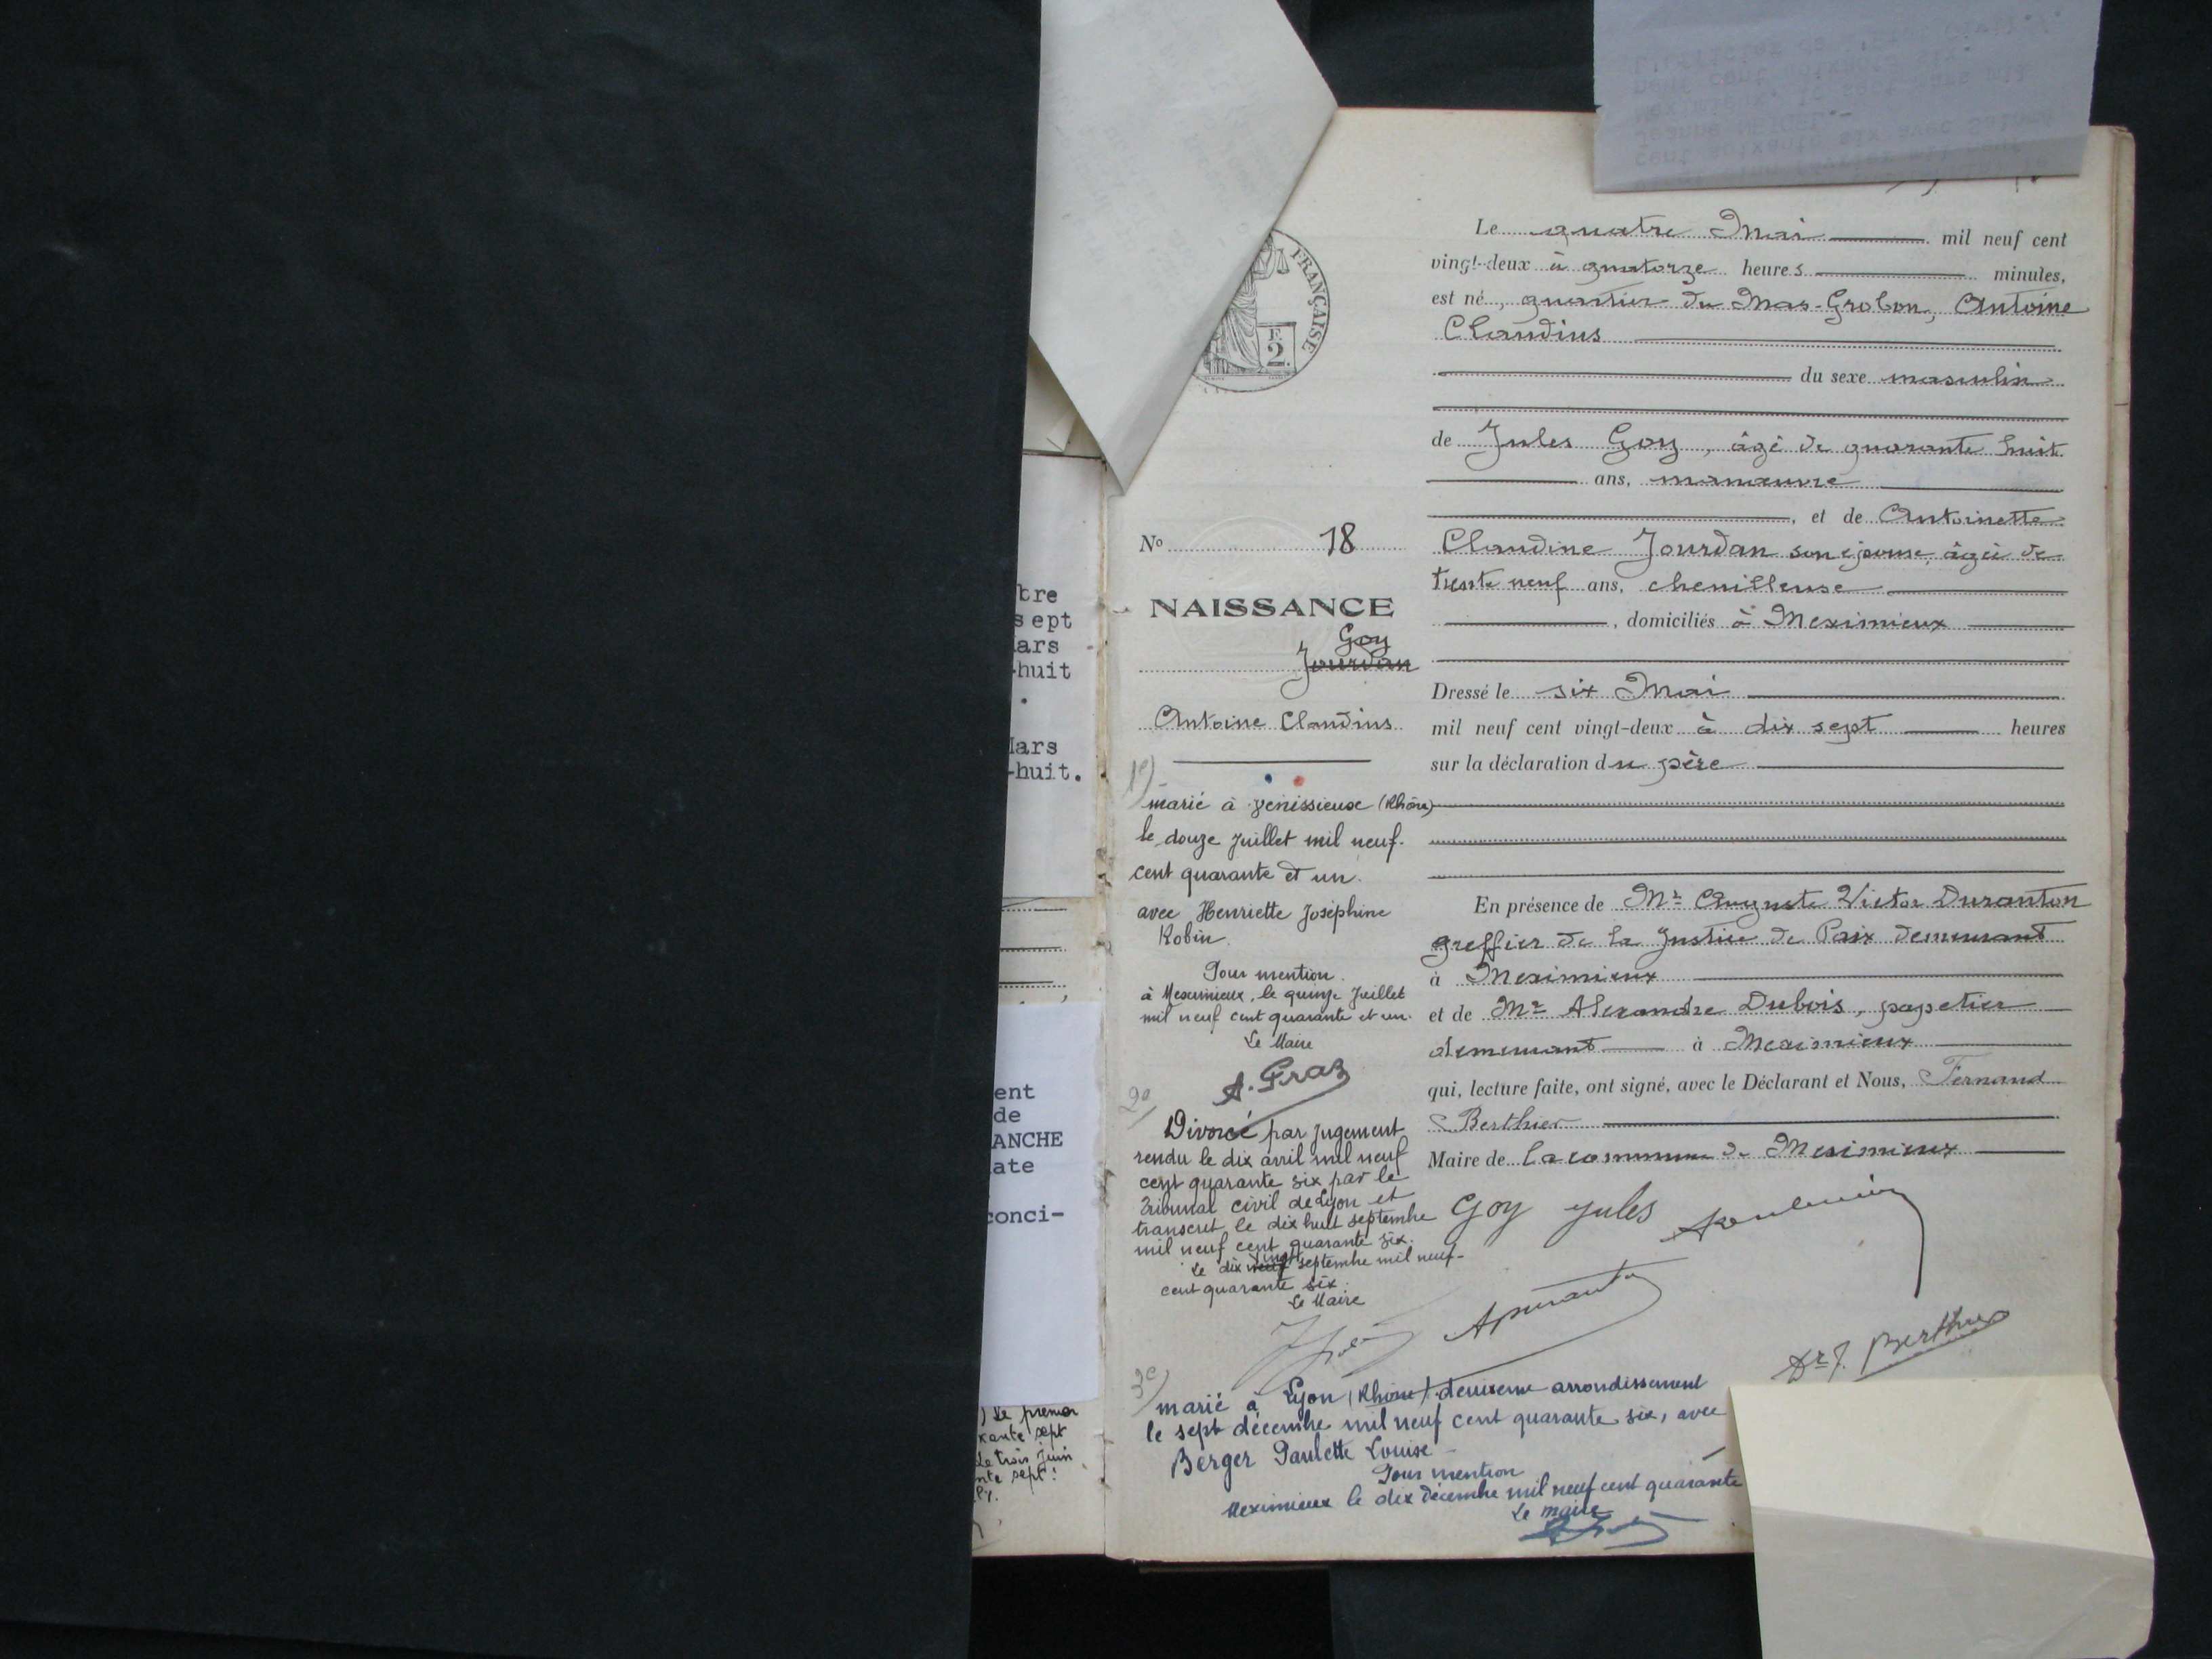 FRANÇAISE
F.
2.
bre
sept
ars
-huit
.
lars
-huit.
ent
de
ANCHE
ate
conci-
) Le premier
xante sept
Le trois juin
nte sept :
No 18
NAISSANCE
Goy
Jourdan
Antoine Claudius
1e)
marié à Vénissieux (Rhône)
le douze Juillet mil neuf-
cent quarante et un.
avec Henriette Joséphine
Robin.
Pour mention.
à Meximieux, le quinze Juillet
mil neuf cent quarante et un.
Le Maire
A. Fraz
2e)
Divorcé par jugement
rendu le dix avril mil neuf
cent quarante six par le
Tribunal civil de Lyon et
transcrit le dix huit septembre
mil neuf cent quarante six.
vingt
Le dix neuf septembre mil neuf-
cent quarante six.
Le Maire
3e)
marié à Lyon (Rhône) deuxième arrondissement
le sept décembre mil neuf cent quarante six, avec
Berger Paulette Louise -
Pour mention
Meximieux le dix décembre mil neuf cent quarante
Le maire
Le quatre Mai mil neuf cent
vingt-deux à quatorze heures minutes,
est né, quartier du Mas-Grobon, Antoine
Claudius
du sexe masculin
de Jules Goy, âgé de quarante huit
ans, manœuvre
, et de Antoinette
Claudine Jourdan son épouse, âgée de
trente neuf ans, chenilleuse
, domiciliés à Meximieux
Dressé le six Mai
mil neuf cent vingt-deux à dix sept heures
sur la déclaration du père
En présence de Mr Auguste Victor Duranton
greffier de la Justice de Paix demeurant
à Meximieux
et de Mr Alexandre Dubois, papetier
demeurant à Meximieux
qui, lecture faite, ont signé, avec le Déclarant et Nous, Fernand
Berthier
Maire de la commune de Meximieux
Goy jules
ADuranton
Dr F. Berthier